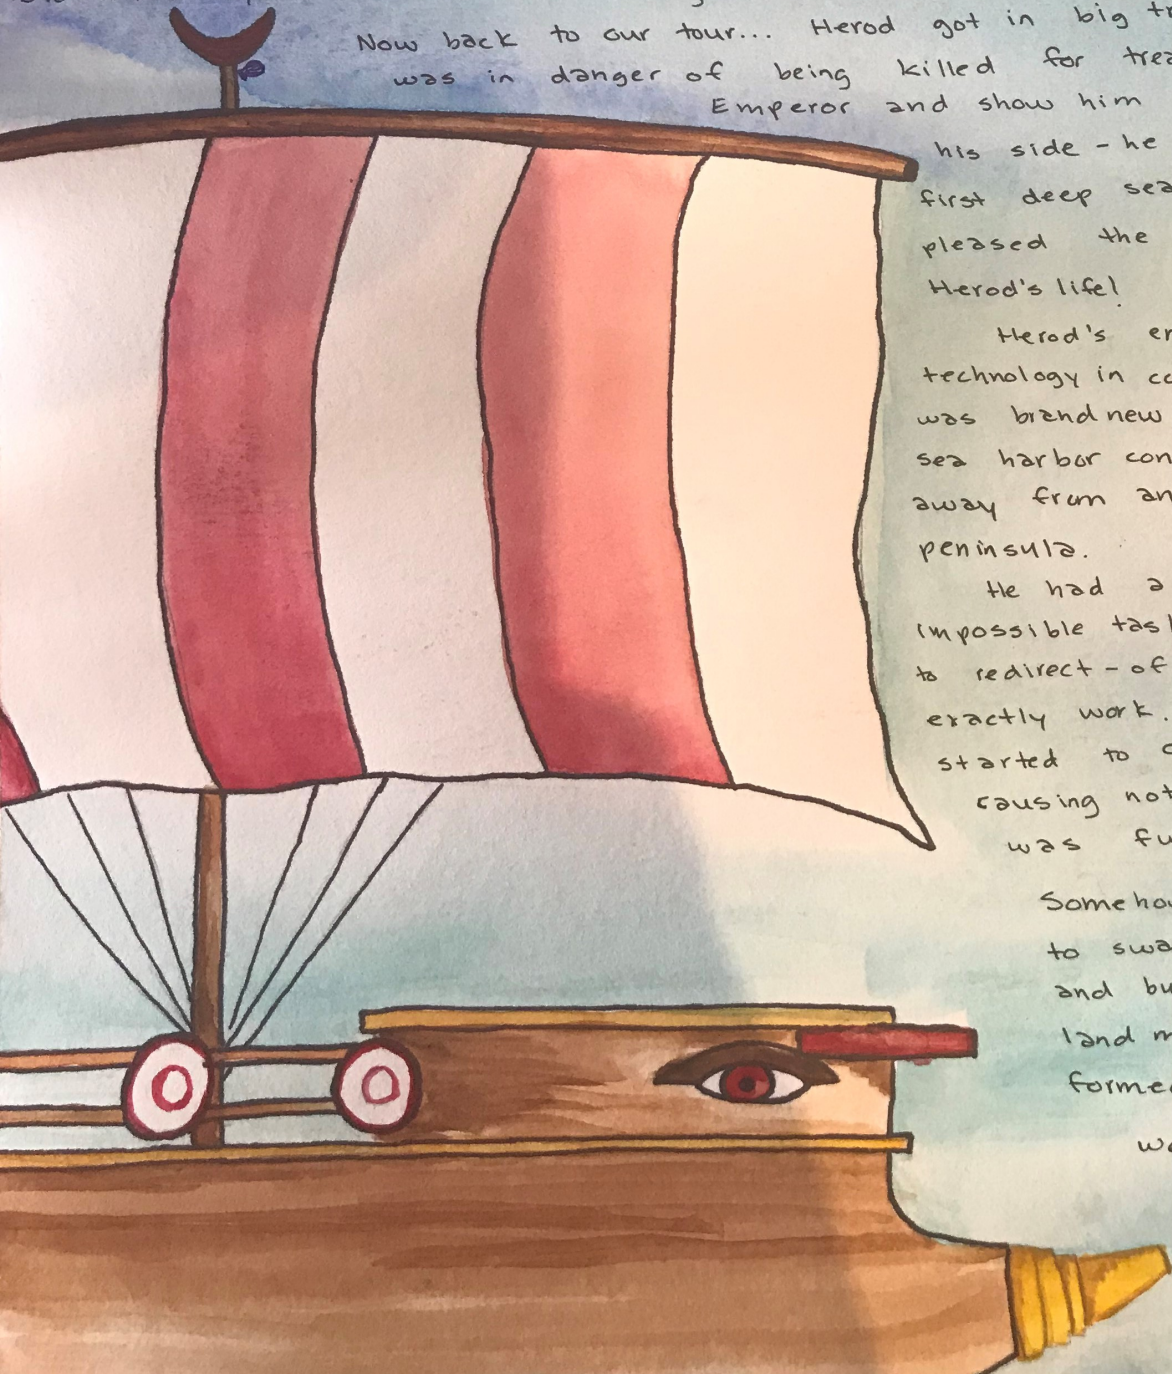 Now back to our tour... Herod got in big
was in danger of being killed for
Emperor and show him
his side - he
first deep
pleased the
Herod's life!
Herod's
technology in
was brand new
sea harbor
away from
peninsula.
He had a
impossible
to redirect - of
exactly work.
started to
causing
was
to
and
land